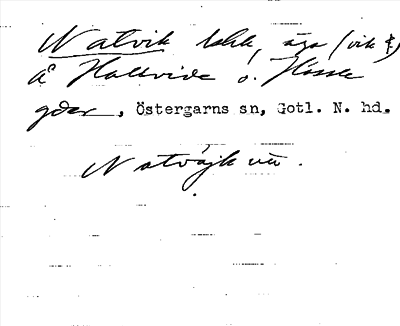 Natvik lokk, äga (vik &)
å Hallvide o. Hässle
gdar, Östergarns sn, Gotl. N. hd.
Natvájk